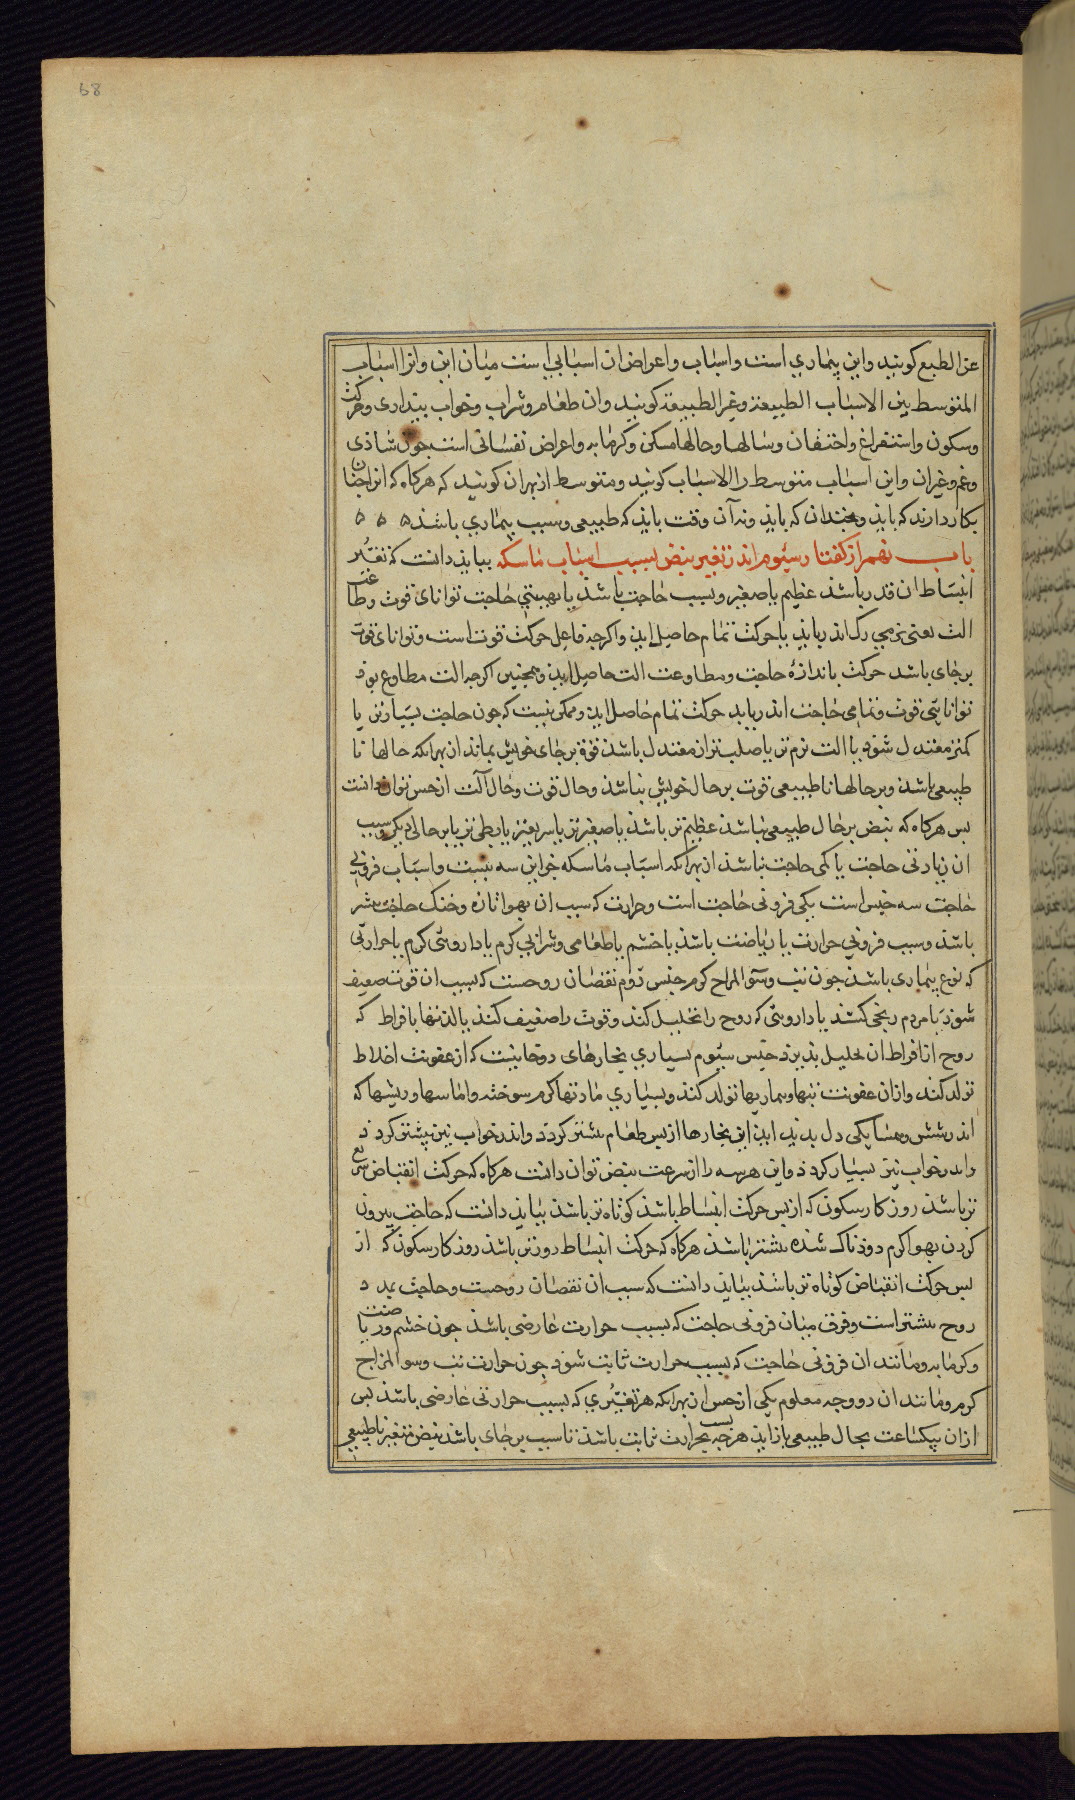 68
عن الطبع کویند واین بیماری است واسباب واعراض ان اسبابی است میان این وانرا اسباب
المتوسط بین الاسباب الطبیعة وغیر الطبیعة کویند وان طعام وشراب وخواب بیداری وحرکت
وسکون واستفراغ واحتقان وسالها وحالها مسکن وکرمابه واعراض نفسانی است جون شاذی
وغم وغیران واین اسباب متوسط را الاسباب کویند ومتوسط از بهر ان کویند که هرکاه که انرا جنان
بکار دارند که بایذ وجندان که بایذ وبذ آن وقت بایذ که طبیعی وسبب بیماری باشذ ه ه ه
باب نهم از کفتار سیوم اندر تغیر نبض بسبب اسباب ماسکه ببایذ دانست که تغیر
انبساط ان قدر باشذ عظیم یا صغیر وبسبب حاجت باشذ یا بهیتنی حاجت توانای قوت وطاعت
الت یعنی نرمی رک اندریابذ با حرکت تمام حاصل ایذ واکرجه فاعل حرکت قوت است وتوانای قوت
برجای باشد حرکت باندازهٔ حاجت ومطاوعت الت حاصل ایذ وهمجنین اکرجه الت مطاوع بوذ
توانایی قوت وتمامی حاجت اندریابد حرکت تمام حاصل ایذ وممکن نیست که جون حاجت بسیارتر یا
کمتر معتدل شوذ یا الت نرم تر یا صلب تر از معتدل باشذ قوة برجای خویش بماند از بهر انکه حالها تا
طبیعی باشذ وبر حالها ناطبیعی قوت بر حال خویش نباشذ وحال قوت وحال آلت از حس توان دانست
بس هرکاه که نبض بر حال طبیعی نباشذ عظیم تر باشذ یا صغیرتر یا سریعتر یا بطی تر یا بر حالی دیکر وسبب
ان زیادتی حاجت یا کمی حاجت نباشذ از بهر انکه اسباب ماسکه جز این سه نیست واسباب فزونی
حاجت سه جنس است یکی فزونی حاجت است وحرارت که سبب ان بهوا تازه وخنک حاجت بیشتر
باشذ وسبب فزونی حرارت یا ریاضت باشذ یا خشم یا طعامی وشرابی کرم یا داروئی کرم یا حرارتی
که نوع بیماری باشذ جون تب وسو المزاج کرم جنس دوم نقصان روحست که بسبب ان قوت ضعیف
شوذ یا مردم رنجی کشذ یا داروئی که روح را تحلیل کند وقوت را ضعیف کند یا لذتها بافراط که
روح از افراط ان تحلیل بذیرذ جنس سیوم بسیاری بخارهای دوخانیست که از عفونت اخلاط
تولد کند وازان عفونت تبها وبیماریها تولد کند وبسیاری مادتها کرم سوخته واماسها وریشها که
اندر شش وهمسایکی دل بدید ایذ این بخارها از بس طعام بیشتر کردد واندر خواب نیز بیشتر کردد
واندر خواب نیز بسیار کردد واین هر سه را از سرعت نبض توان دانست هرکاه که حرکت انقباض سریع
تر باشذ روزکار سکون که از بس حرکت انبساط باشذ کوتاه تر باشذ ببایذ دانست که حاجت بیرون
کردن بهوا کرم دوذناک شده بیشتر باشذ هرکاه که حرکت انبساط زودتر باشذ روزکار سکون که از
بس حرکت انقباض کوتاه تر باشذ ببایذ دانست که سبب ان نقصان روحست وحاجت بمدد
روح بیشتر است وفرق میان فزونی حاجت که بسبب حرارت عارضی باشذ جون خشم وریاضت
وکرمابه ومانند ان فزونی حاجت که بسبب حرارت ثابت شوذ جون حرارت تب وسو المزاج
کرم ومانند ان دو وجه معلوم یکی از حس ازبهر انکه هر تغیری که بسبب حرارتی عارضی باشذ بس
ازان بیکساعت بحال طبیعی باز ایذ هرجه بسبب حرارت ثابت باشذ تا سبب برجای باشذ نبض متغیر ناطبیعی